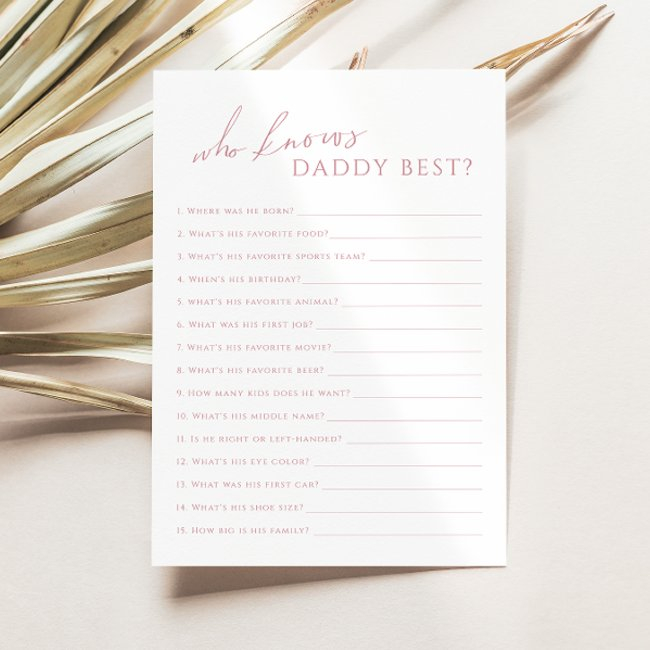 who knows
DADDY BEST?
1. Where was he born?
2. What's his favorite food?
3. What's his favorite sports team?
4. When's his birthday?
5. what's his favorite animal?
6. What was his first job?
7. What's his favorite movie?
8. What's his favorite beer?
9. How many kids does he want?
10. What's his middle name?
11. Is he right or left-handed?
12. What's his eye color?
13. What was his first car?
14. What's his shoe size?
15. How big is his family?